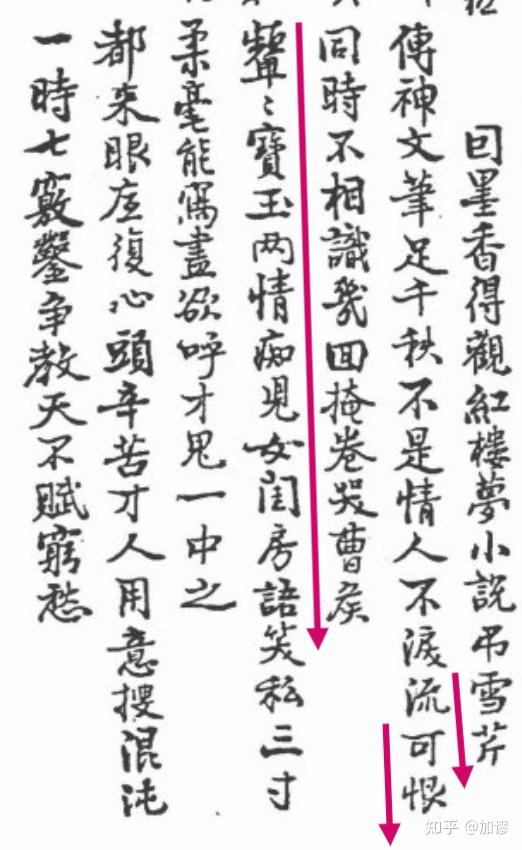 囙墨香得觀紅樓夢小説吊雪芹
傳神文筆足千秋不是情人不淚流可恨
同時不相識幾囬掩卷哭曹侯
顰〻寶玉两情痴兒女閨房語笑私三寸
柔毫能寫盡欲呼才鬼一中之
都来眼底復心頭辛苦才人用意搜混沌
一時七竅鑿争教天不賦窮愁
知乎 @加谬